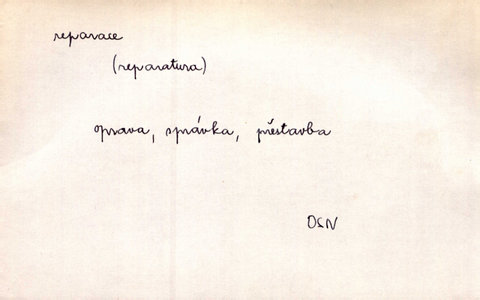 reparace
(reparatura)
oprava, správka, přestavba
OSN